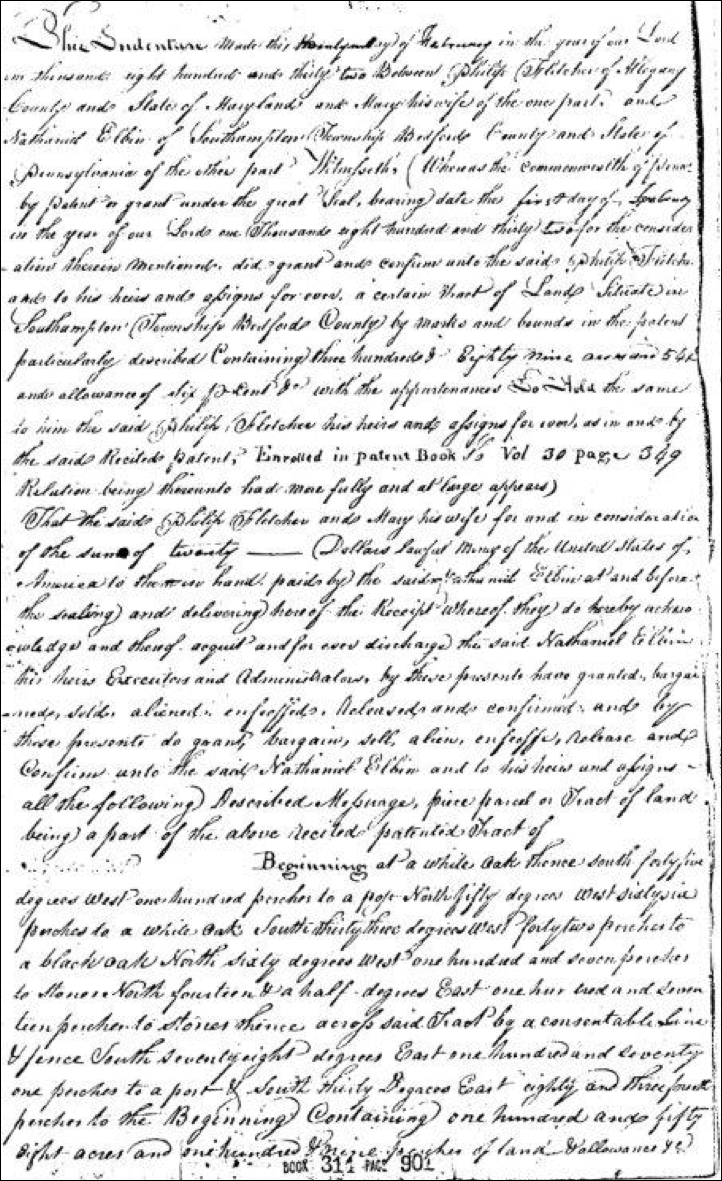 This Indenture Made this day of February in the year of our Lord
one thousand eight hundred and thirty two Between Philip Fletcher of Allegany
County and State of Maryland and Mary his wife of the one part and
Nathaniel Elbin of Southampton Township Bedford County and State of
Pennsylvania of the other part Witnesseth, (Whereas the commonwealth of Penna
by patent or grant under the great Seal, bearing date the first day of February
in the year of our Lord one Thousand eight hundred and thirty two for the consider
ation therein mentioned, did grant and confirm unto the said Philip Fletcher
and to his heirs and assigns for ever, a certain Tract of Land Situate in
Southampton Township Bedford County by marks and bounds in the patent
particularly described Containing three hundred & Eighty nine acres and 54
and allowance of six p cent &c with the appurtenances To Hold the same
to him the said Philip Fletcher his heirs and assigns for ever, as in and by
the said Recited patent, Enrolled in patent Book Vol 30 page 349
Relation being thereunto had more fully and at large appears)
That the said Philip Fletcher and Mary his wife for and in consideration
of the sum of twenty —— Dollars lawful Money of the United States of
America to them in hand paid by the said Nathaniel Elbin at and before
the sealing and delivering hereof the Receipt whereof they do hereby ackno
wledge and thereof acquit and for ever discharge the said Nathaniel Elbin
his heirs Executors and Administrators, by these presents have granted, bargai
ned, sold, aliened, enfeoffed, Released and confirmed, and by
these presents do grant, bargain, sell, alien, enfeoffe, release and
Confirm unto the said Nathaniel Elbin and to his heirs and assigns -
all the following Described Messuage, piece parcel or Tract of land
being a part of the above recited patented Tract of
Beginning at a white oak thence south forty five
degrees West one hundred perches to a post North fifty degrees West sixty six
perches to a white oak South thirty three degrees West forty two perches to
a black oak North sixty degrees West one hundred and seven perches
to stones North fourteen & a half degrees East one hundred and seven
teen perches to stones thence across said Tract by a consentable Line
& fence South seventy eight degrees East one hundred and seventy
one perches to a post & South thirty Degrees East eighty and three fourth
perches to the Beginning Containing one hundred and fifty
eight acres and one hundred & nine perches of land & allowance &c
BOOK 311 PAGE 901